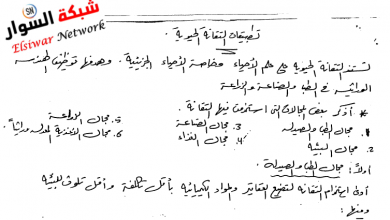 شبكة السوار
SN
Elsiwar Network
تطبيقات التقانة الحيوية
تستند التقانة الحيوية على علم الأحياء وخاصة الأحياء الجزيئية. وهدفها توظيف الهندسة
الوراثية في الطب والصناعة والزراعة
* أذكر بعض المجالات التي استخدمت فيها التقانة.
1. مجال الطب والصيدلة 3. مجال الصناعة 5. مجال الزراعة
2. مجال البيئة 4. مجال الغذاء 6. مجال الأغذية المعدلة وراثياً.
أولاً: مجال الطب والصيدلة:
أدى استخدام التقانة لتصنيع العقاقير والمواد الكيميائية بأقل تكلفة وأقل تلوث للبيئة
ومنها: